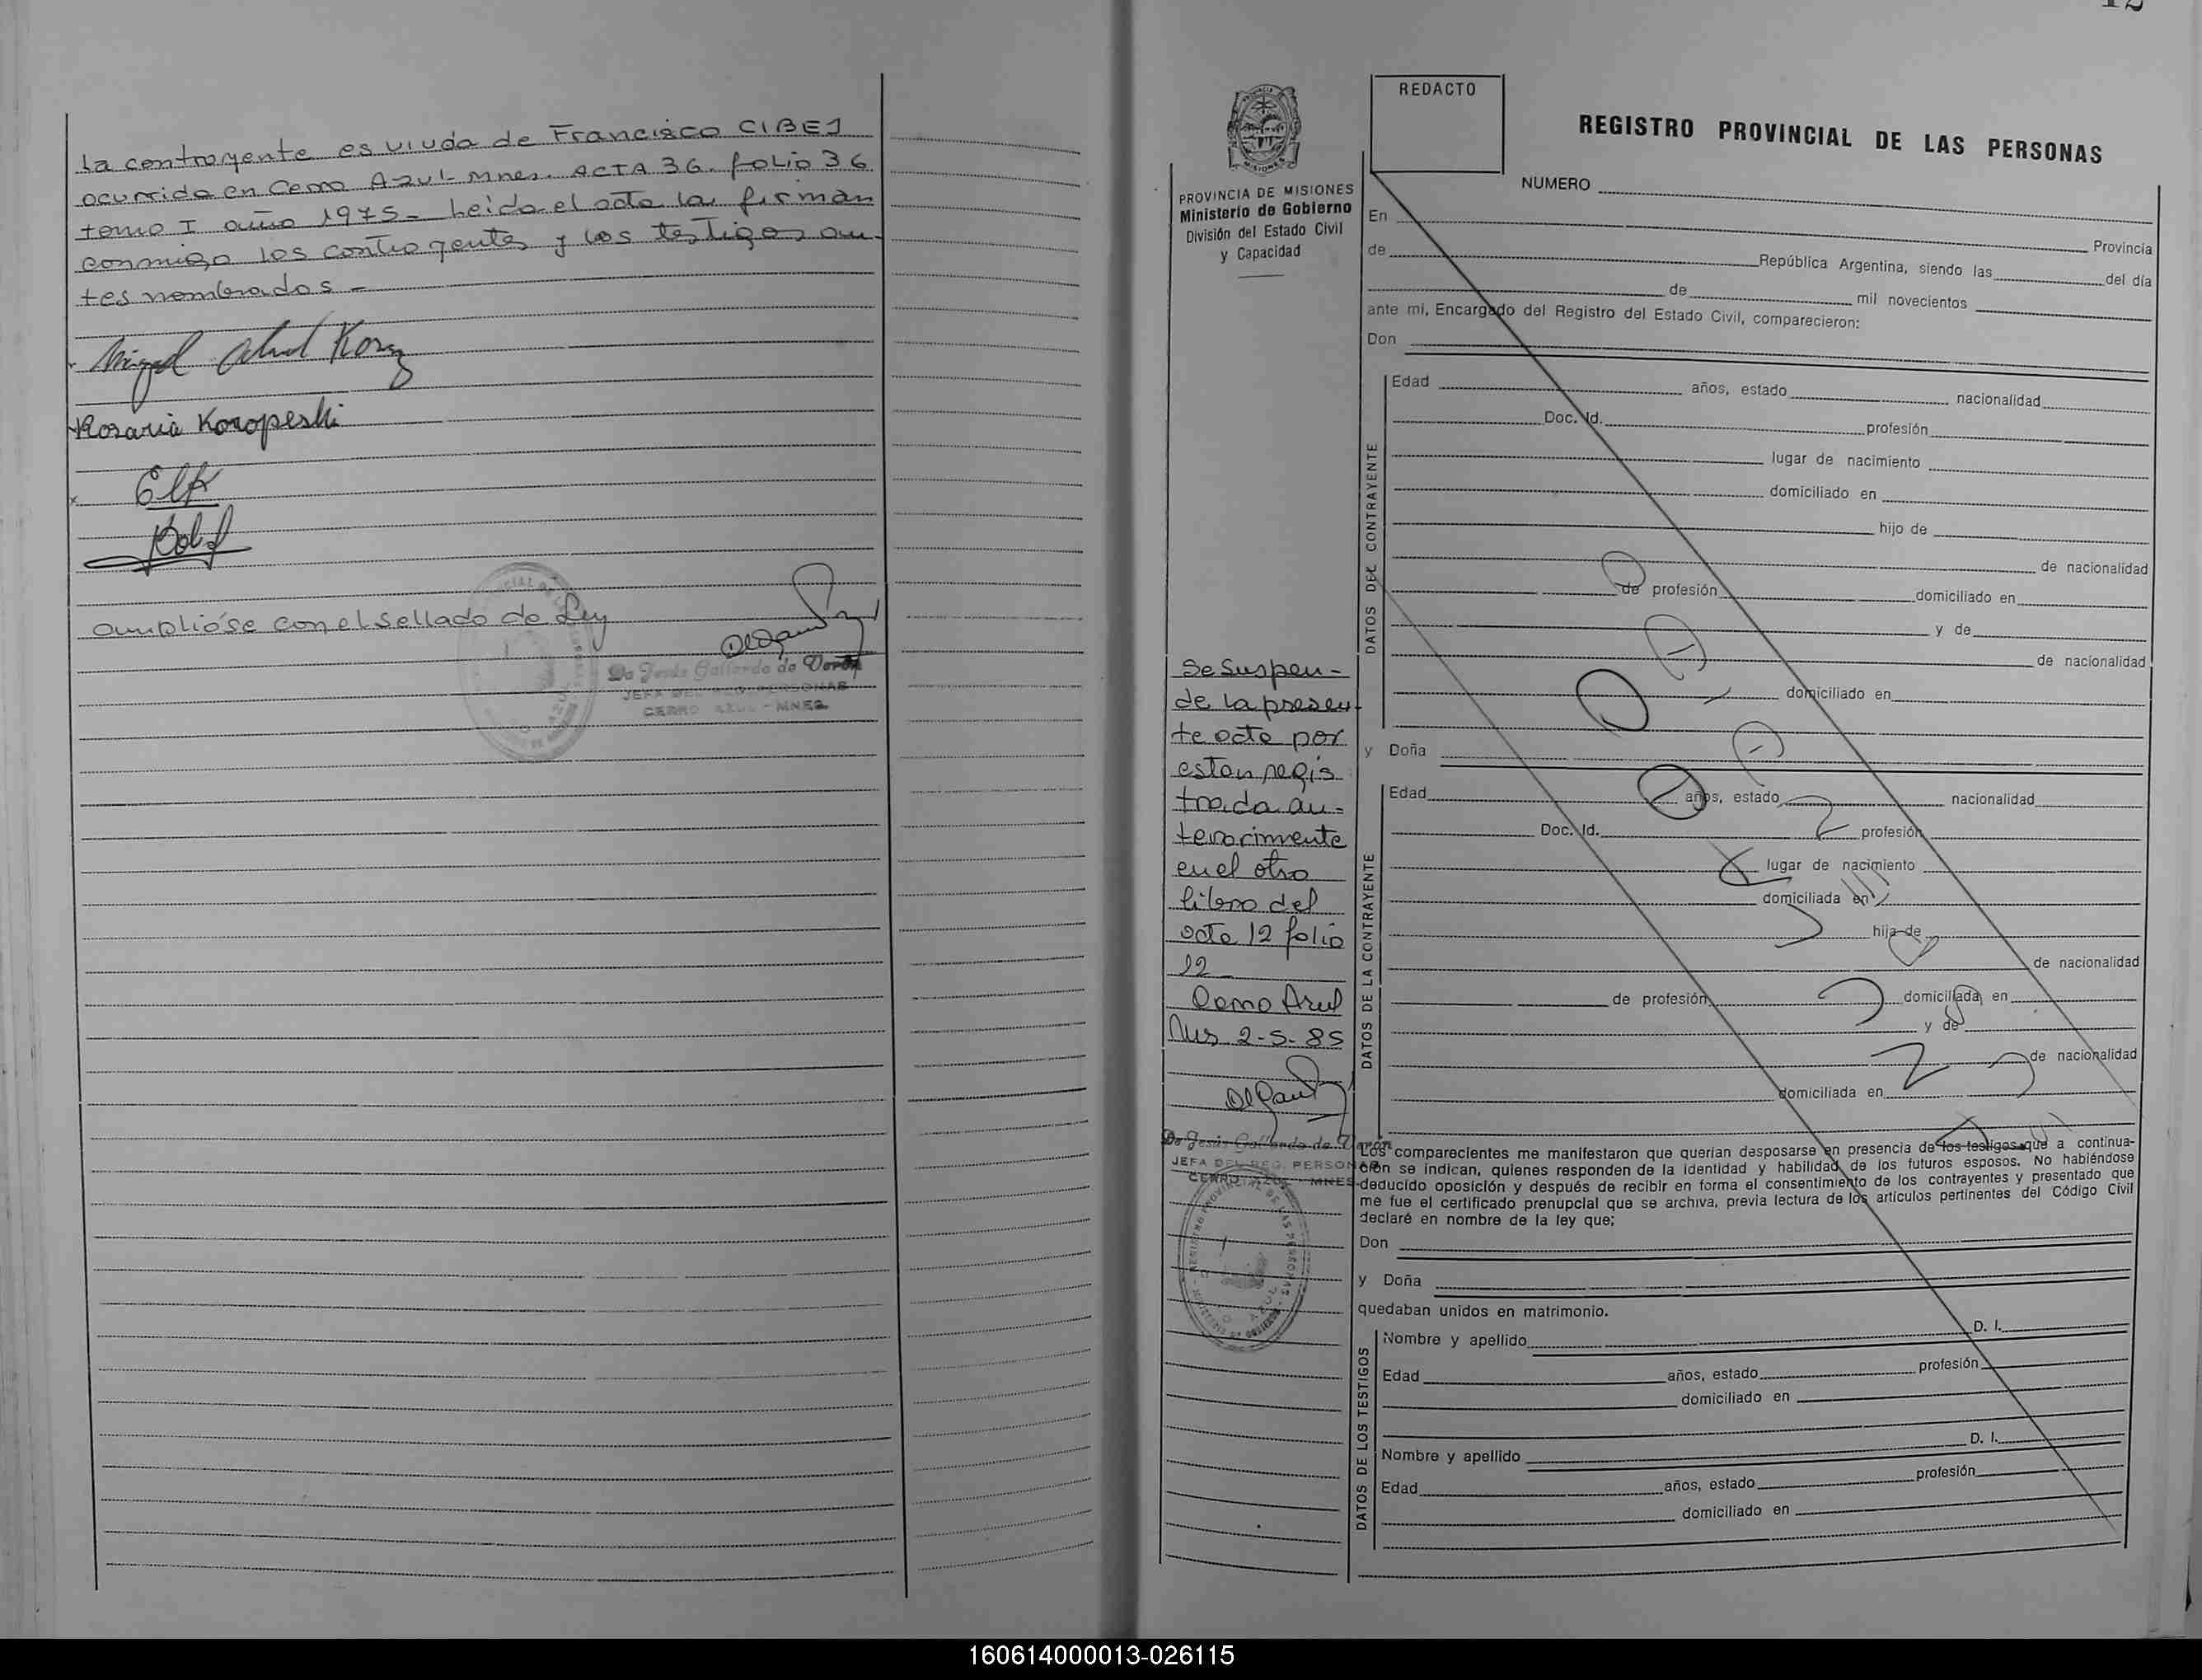 La contrayente es viuda de Francisco CIBEJ
ocurrido en Cerro Azul - Mnes. ACTA 36. folio 36
tomo I año 1975 - Leida el acta la firman
conmigo los contrayentes y los testigos an-
tes nombrados -
Rosaria Koropeski
ampliose con el sellado de Ley
Da Jesús Gallardo de Verón
JEFA DEL REG. PERSONAS
CERRO AZUL - MNES
12
PROVINCIA DE MISIONES
Ministerio de Gobierno
División del Estado Civil
y Capacidad
Se suspen-
de la presen-
te acta por
estar regis
trada an-
teriormente
en el otro
libro del
acta 12 folio
12
Cerro Azul
Mns 2-5-85
Da Jesús Gallardo de Verón
JEFA DEL REG. PERSONAS
CERRO AZUL - MNES
REDACTO
REGISTRO PROVINCIAL DE LAS PERSONAS
NUMERO
En
Provincia
de República Argentina, siendo las del día
de mil novecientos
ante mi, Encargado del Registro del Estado Civil, comparecieron:
Don
DATOS DEL CONTRAYENTE
Edad años, estado nacionalidad
Doc. Id. profesión
lugar de nacimiento
domiciliado en
hijo de
de nacionalidad
de profesión domiciliado en
y de
de nacionalidad
domiciliado en
y Doña
DATOS DE LA CONTRAYENTE
Edad años, estado nacionalidad
Doc. Id. profesión
lugar de nacimiento
domiciliada en
hija de
de nacionalidad
de profesión domiciliada en
y de
de nacionalidad
domiciliada en
Los comparecientes me manifestaron que querían desposarse en presencia de los testigos que a continua-
ción se indican, quienes responden de la identidad y habilidad de los futuros esposos. No habiéndose
deducido oposición y después de recibir en forma el consentimiento de los contrayentes y presentado que
me fue el certificado prenupcial que se archiva, previa lectura de los artículos pertinentes del Código Civil
declaré en nombre de la ley que;
Don
y Doña
quedaban unidos en matrimonio.
DATOS DE LOS TESTIGOS
Nombre y apellido D. I.
Edad años, estado profesión
domiciliado en
Nombre y apellido D. I.
Edad años, estado profesión
domiciliado en
160614000013-026115